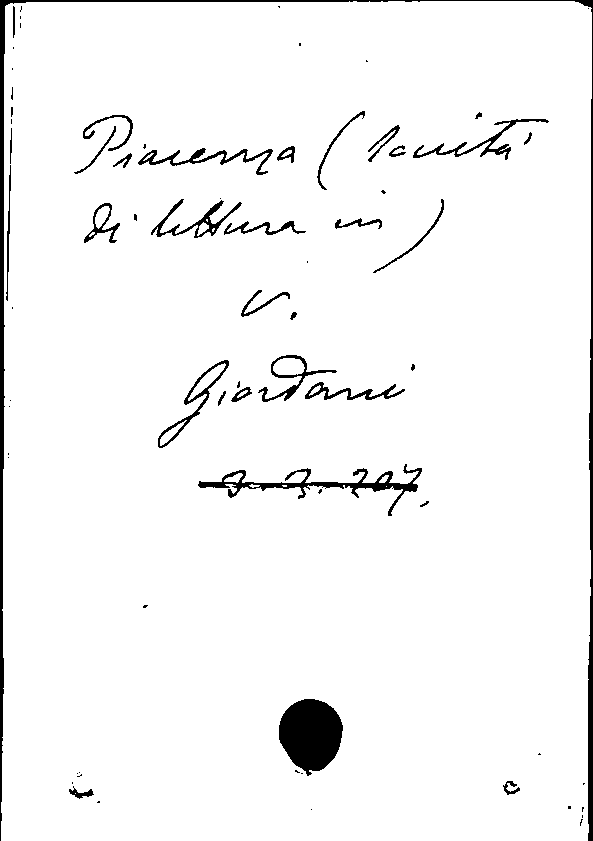 Piacenza (società
di lettura in)
v.
Giordani
3. 3. 207.